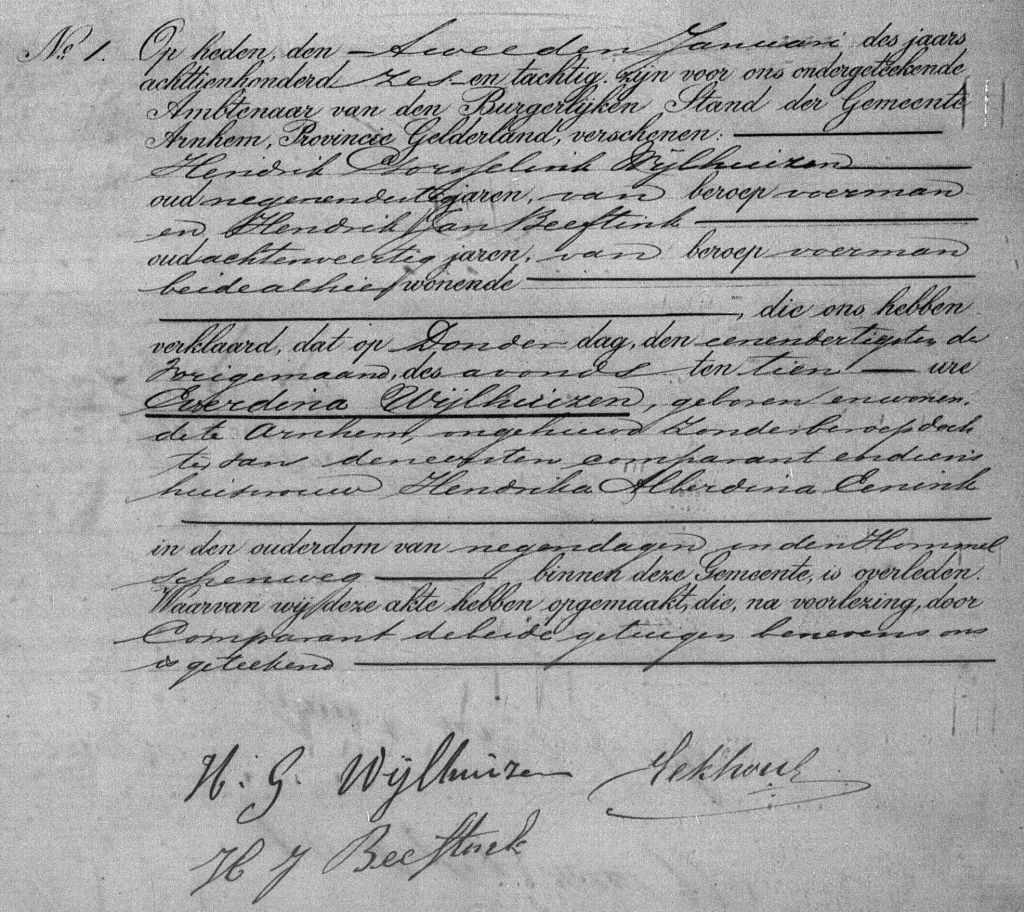 No. 1. Op heden, den tweeden Januari des jaars
achttienhonderd zes en tachtig, zijn voor ons ondergeteekende
Ambtenaar van den Burgerlijken Stand der Gemeente
Arnhem, Provincie Gelderland, verschenen:
Hendrik Wijlhuizen
oud negenendertig jaren, van beroep voerman
en Hendrik Jan Beeftink
oud achtenveertig jaren, van beroep voerman
beide alhier wonende
, die ons hebben
verklaard, dat op Donderdag, den eenendertigsten der
vorige maand, des avonds ten tien ure
Everdina Wijlhuizen, geboren en wonen,
de te Arnhem, ongehuwd zonder beroep doch
ter van den eersten comparant en diens
huisvrouw Hendrika Alberdina Eenink
in den ouderdom van negen dagen in den Hommel
schenweg binnen deze Gemeente, is overleden.
Waarvan wij deze akte hebben opgemaakt, die, na voorlezing, door
Comparant de beide getuigen benevens ons
is geteekend
H. G. Wijlhuizen
H J Beeftink